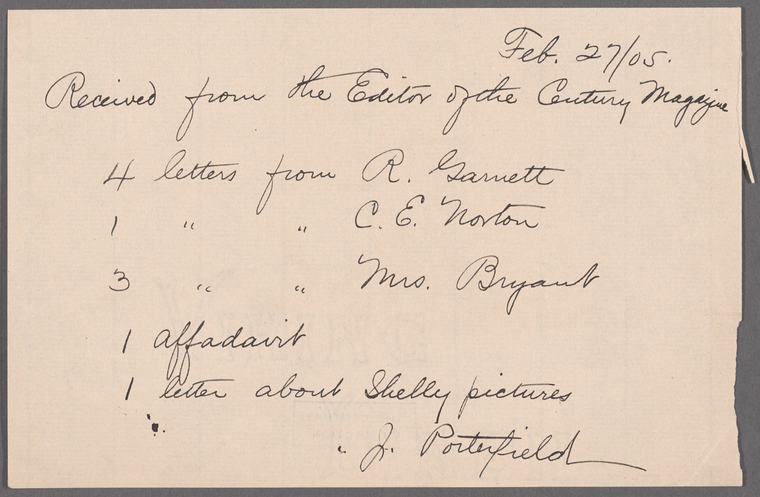 Feb. 27/05.
Received from the Editor of the Century Magazine
4 letters from R. Garnett
1 " " C. E. Norton
3 " " Mrs. Bryant
1 affadavit
1 letter about Shelly pictures
J. Porterfield